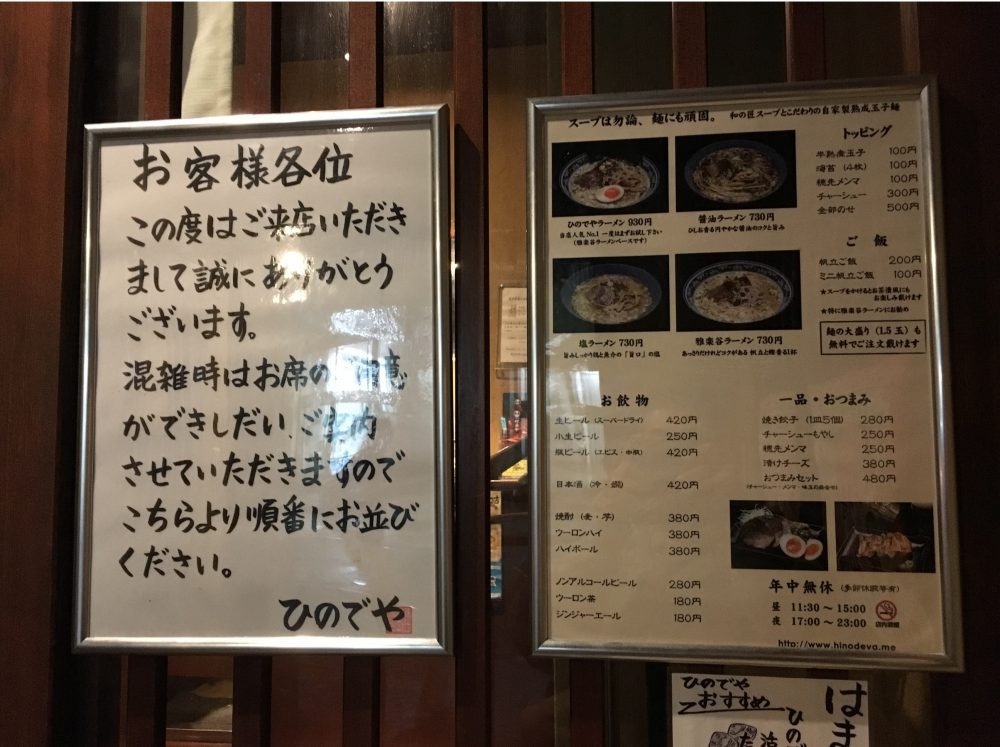 お客様各位
この度はご来店いただき
まして誠にありがとう
ございます。
混雑時はお席のご用意
ができしだい、ご案内
させていただきますので
こちらより順番にお並び
ください。
ひのでや
スープは勿論、麺にも頑固。 和の匠スープとこだわりの自家製熟成玉子麺
ひのでやラーメン 930円
当店人気No.1 一度はまずお試し下さい
(雅楽谷ラーメンベースです)
醤油ラーメン 730円
ひしお香る円やかな醤油のコクと旨み
塩ラーメン 730円
旨みしっかり鶏と魚介の「旨口」の塩
雅楽谷ラーメン 730円
あっさりだけれどコクがある 帆立と鰹香る1杯
トッピング
半熟煮玉子 100円
海苔(4枚) 100円
穂先メンマ 100円
チャーシュー 300円
全部のせ 500円
ご飯
帆立ご飯 200円
ミニ帆立ご飯 100円
★スープをかけるとお茶漬風にも
お楽しみ戴けます
★特に雅楽谷ラーメンにお勧め
麺の大盛り(1.5玉)も
無料でご注文戴けます
お飲物
生ビール(スーパードライ) 420円
小生ビール 250円
瓶ビール(エビス・中瓶) 420円
日本酒(冷・燗) 420円
焼酎(麦・芋) 380円
ウーロンハイ 380円
ハイボール 380円
ノンアルコールビール 280円
ウーロン茶 180円
ジンジャーエール 180円
一品・おつまみ
焼き餃子(1皿5個) 280円
チャーシューもやし 250円
穂先メンマ 250円
漬けチーズ 380円
おつまみセット 480円
年中無休(季節休暇等有)
昼 11:30～15:00
夜 17:00～23:00
店内禁煙
http://www.hinodeya.me
ひのでや
おすすめ
はま
ひので